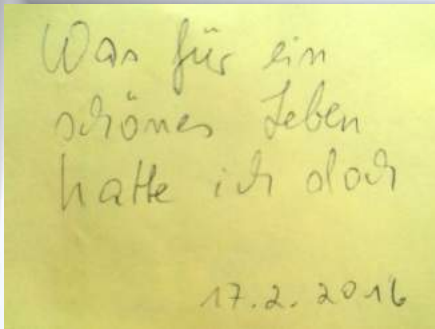 Was für ein
schönes Leben
hatte ich doch
17.2.2016